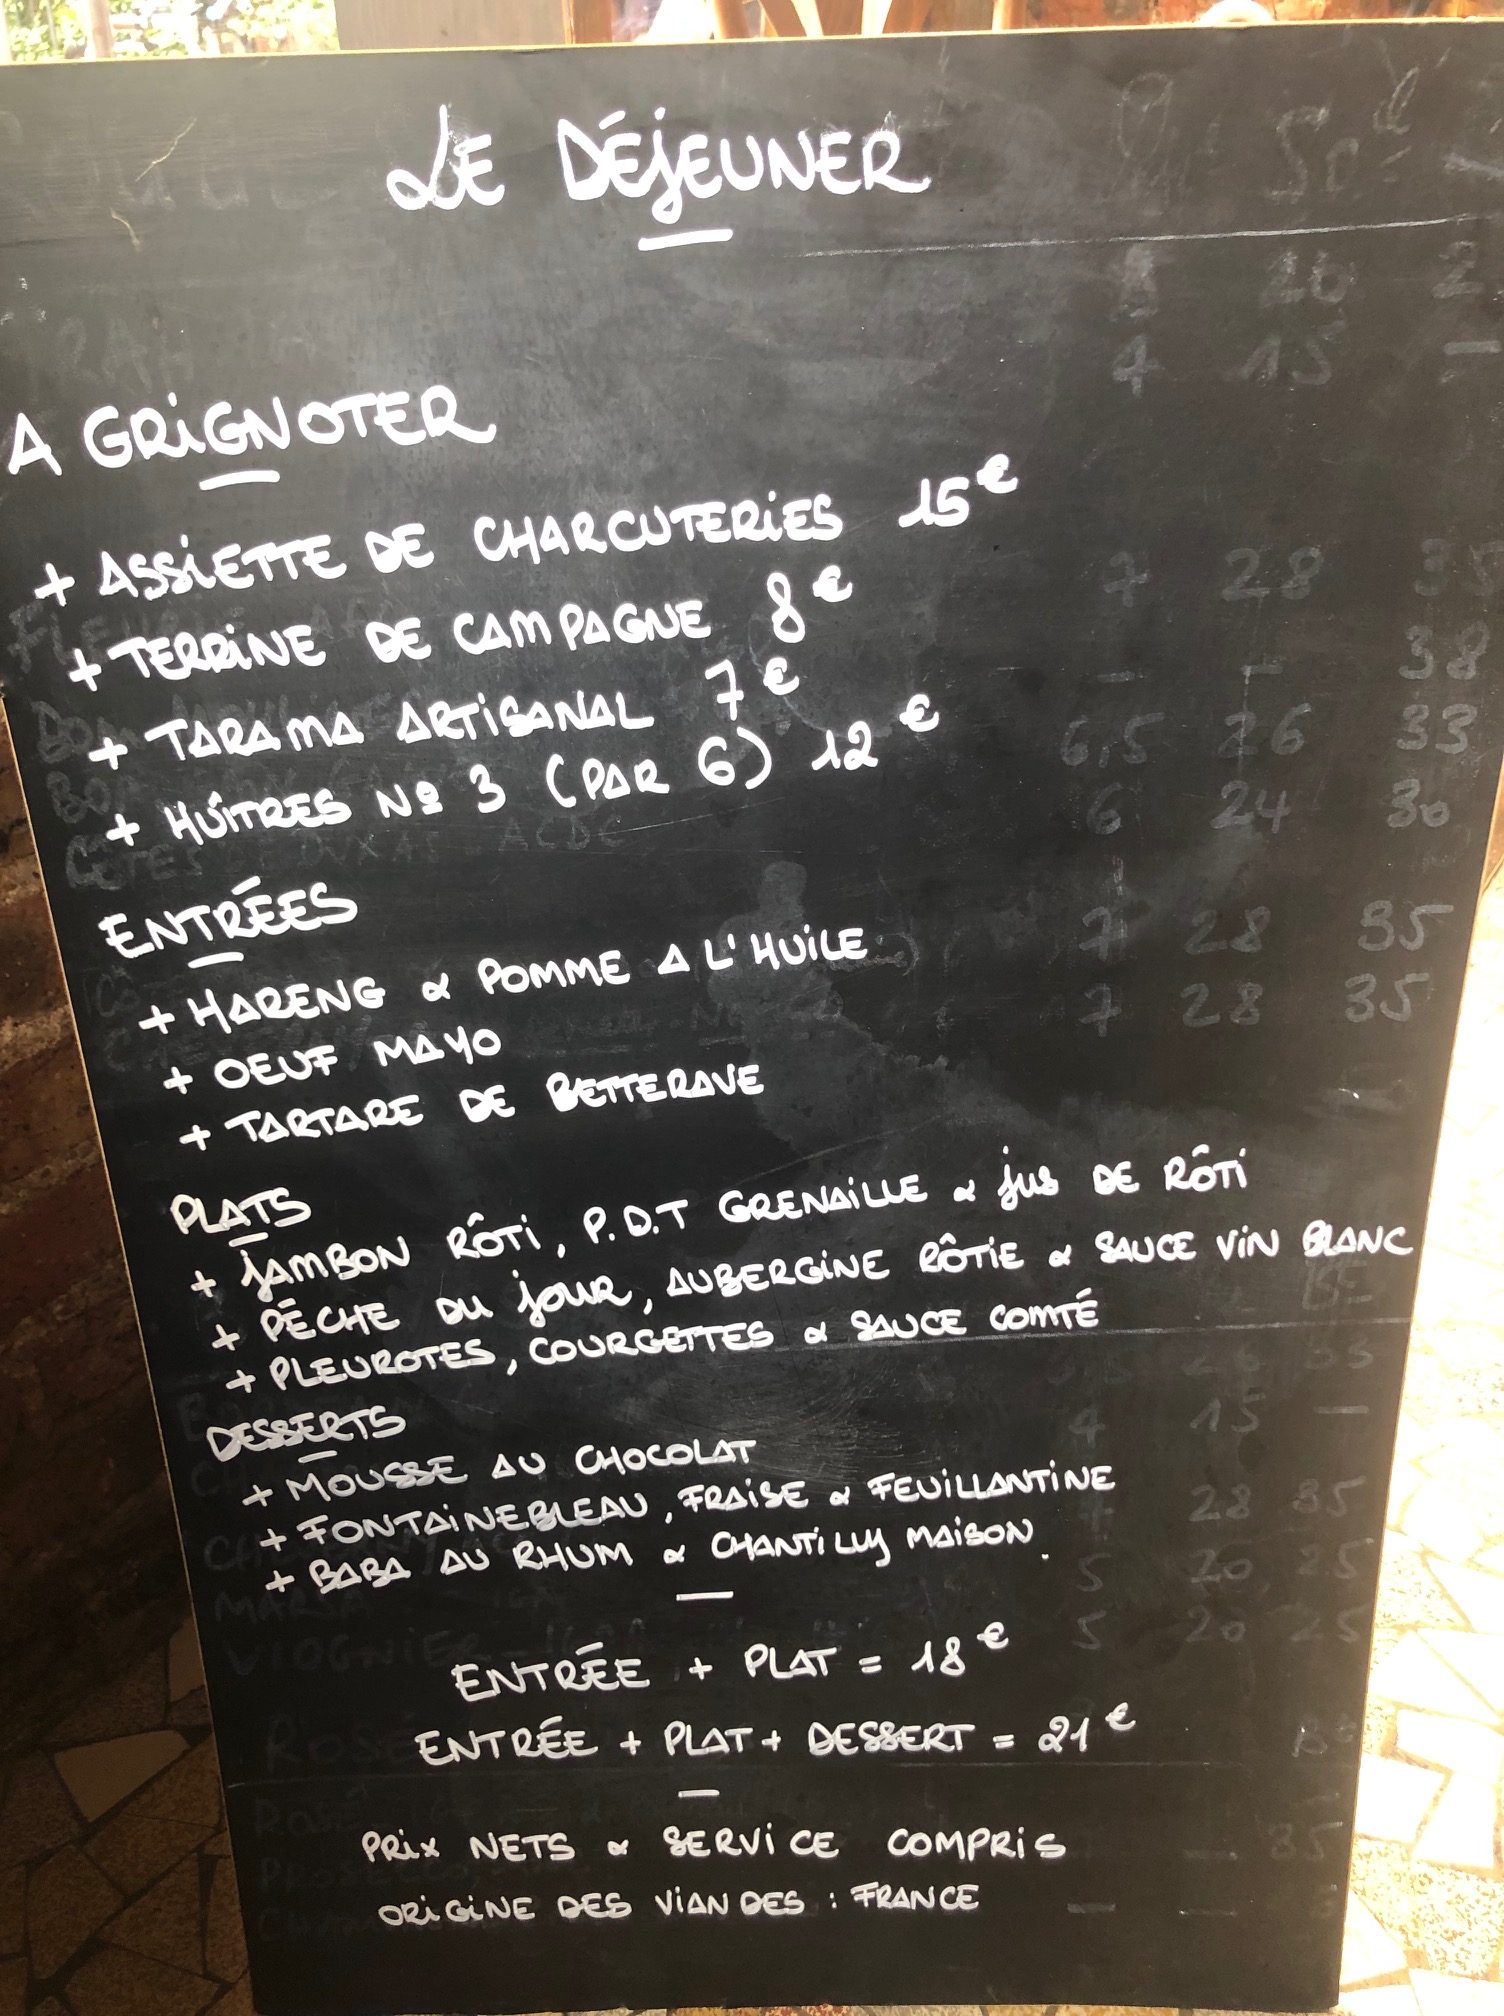 LE DÉJEUNER
A GRIGNOTER
+ ASSIETTE DE CHARCUTERIES 15€
+ TERRINE DE CAMPAGNE 8€
+ TARAMA ARTISANAL 7€
+ HUÎTRES Nº 3 (PAR 6) 12€
ENTRÉES
+ HARENG & POMME A L'HUILE
+ OEUF MAYO
+ TARTARE DE BETTERAVE
PLATS
+ JAMBON RÔTI, P.D.T GRENAILLE & JUS DE RÔTI
+ PÊCHE DU JOUR, AUBERGINE RÔTIE & SAUCE VIN BLANC
+ PLEUROTES, COURGETTES & SAUCE COMTÉ
DESSERTS
+ MOUSSE AU CHOCOLAT
+ FONTAINEBLEAU, FRAISE & FEUILLANTINE
+ BABA AU RHUM & CHANTILLY MAISON.
ENTRÉE + PLAT = 18€
ENTRÉE + PLAT + DESSERT = 21€
PRIX NETS & SERVICE COMPRIS
ORIGINE DES VIANDES : FRANCE